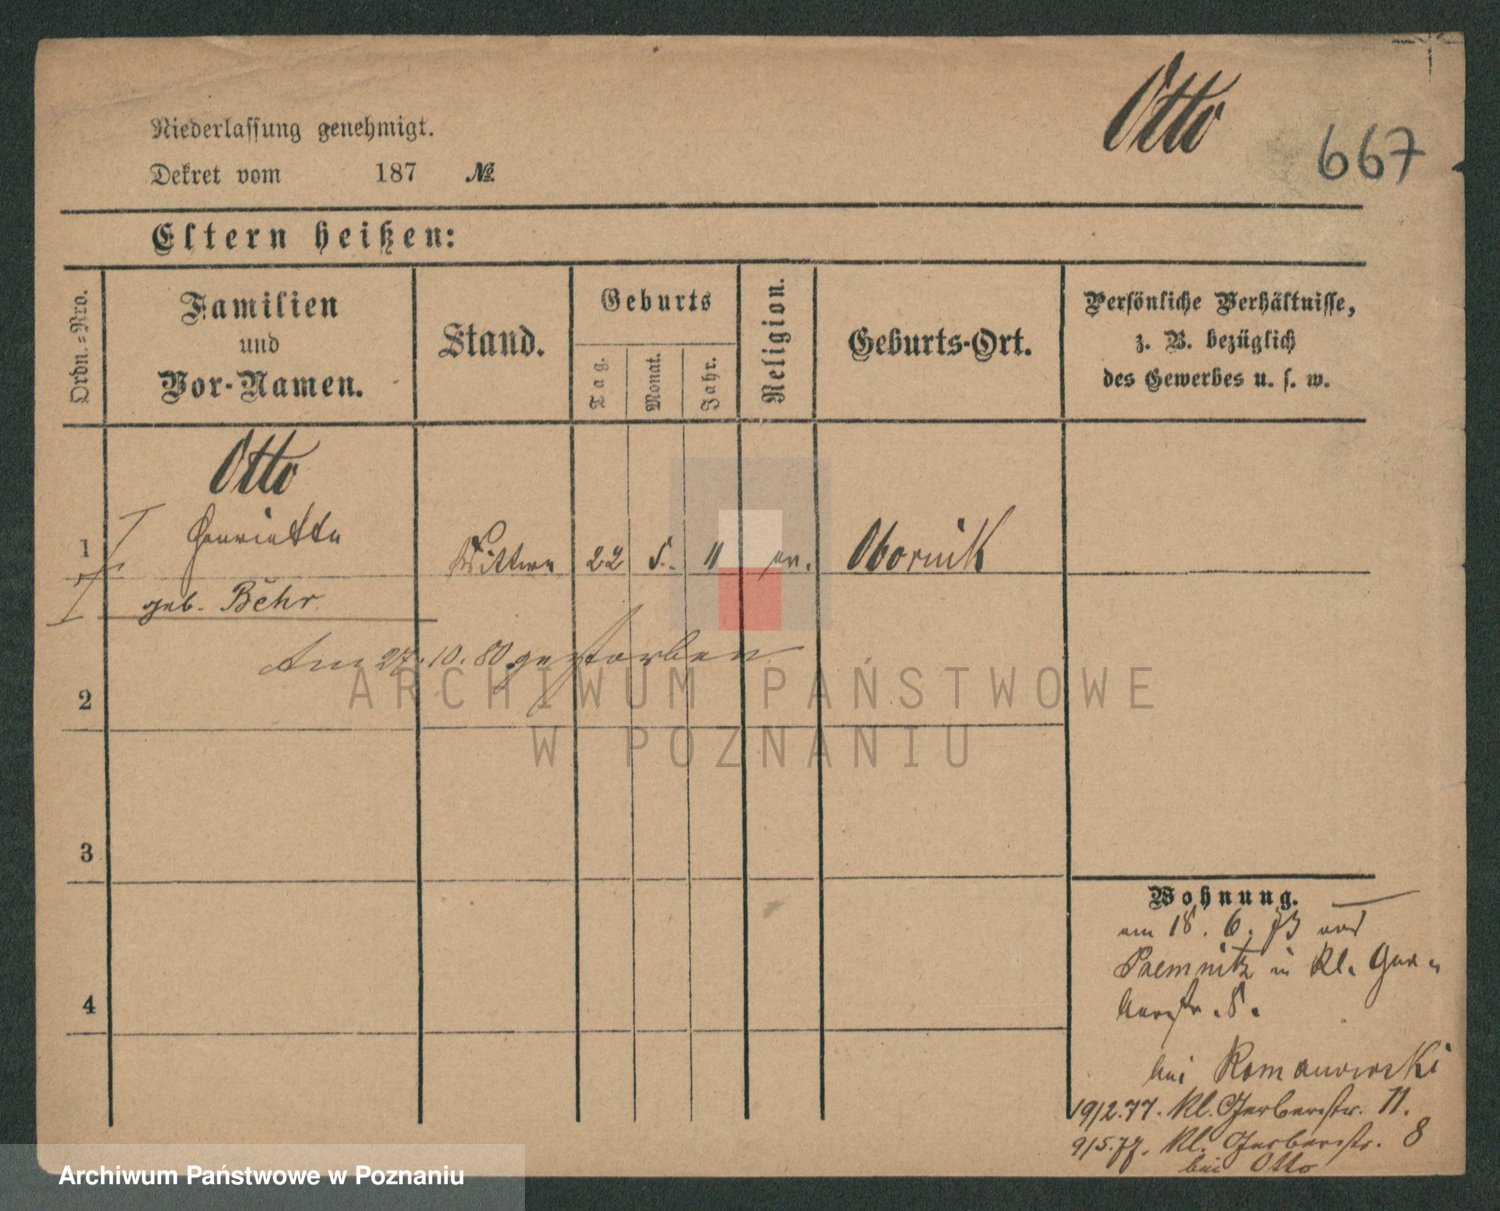 Otto
667
Niederlassung genehmigt.
Dekret vom 187 №
Eltern heißen:
Ordn.-Nro.
Familien
und
Vor-Namen.
Stand.
Geburts
Tag.
Monat.
Jahr.
Religion.
Geburts-Ort.
Persönliche Verhältnisse,
z. B. bezüglich
des Gewerbes u. s. w.
Otto
1 Henriette Wittwe 22 5. 11 ev. Obornik
geb. Behr.
Am 27.10.80 gestorben
2
ARCHIWUM PAŃSTWOWE
W POZNANIU
3
Wohnung.
am 18. 6. 73 aus
in Kl. Ger-
berstr. 8.
4
bei Romanowski
19/2.77. Kl. Gerberstr. 11.
9/5.77. Kl. Gerberstr. 8
bei Otto
Archiwum Państwowe w Poznaniu